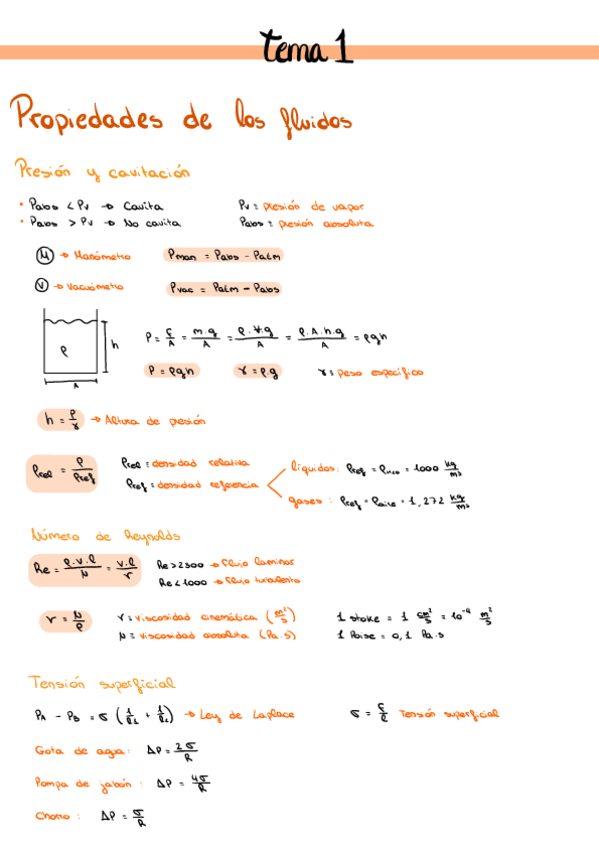 Tema 1
Propiedades de los fluidos
Presión y cavitación
• Pabs < Pv → Cavita Pv = presión de vapor
• Pabs > Pv → No cavita Pabs = presión absoluta
M → Manómetro Pman = Pabs - Patm
V → Vacuómetro Pvac = Patm - Pabs
P = F/A = m.g/A = ρ.V.g/A = ρ.A.h.g/A = ρgh
ρ h A
P = ρgh γ = ρ.g γ = peso específico
h = P/γ → Altura de presión
ρrel = ρ/ρref ρrel = densidad relativa
ρref = densidad referencia
líquidos: ρref = ρH2O = 1000 kg/m³
gases: ρref = ρaire = 1,272 kg/m³
Número de Reynolds
Re = ρ.v.l/μ = v.l/γ Re > 2300 → Flujo laminar
Re < 1000 → Flujo turbulento
γ = μ/ρ γ = viscosidad cinemática (m²/s) 1 stoke = 1 cm²/s = 10⁻⁴ m²/s
μ = viscosidad absoluta (Pa.s) 1 Poise = 0,1 Pa.s
Tensión superficial
PA - PB = σ (1/R1 + 1/R2) → Ley de Laplace σ = F/l Tensión superficial
Gota de agua: ΔP = 2σ/R
Pompa de jabón: ΔP = 4σ/R
Chorro: ΔP = σ/R